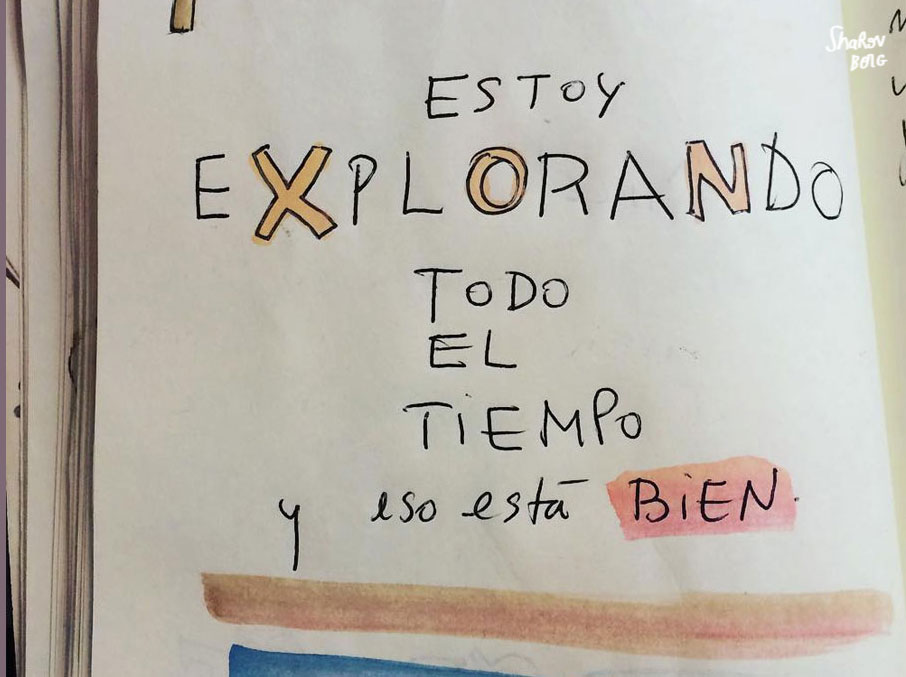 Sharov
BERG
ESTOY
EXPLORANDO
TODO
EL
TiEMPO
y eso está BiEN.